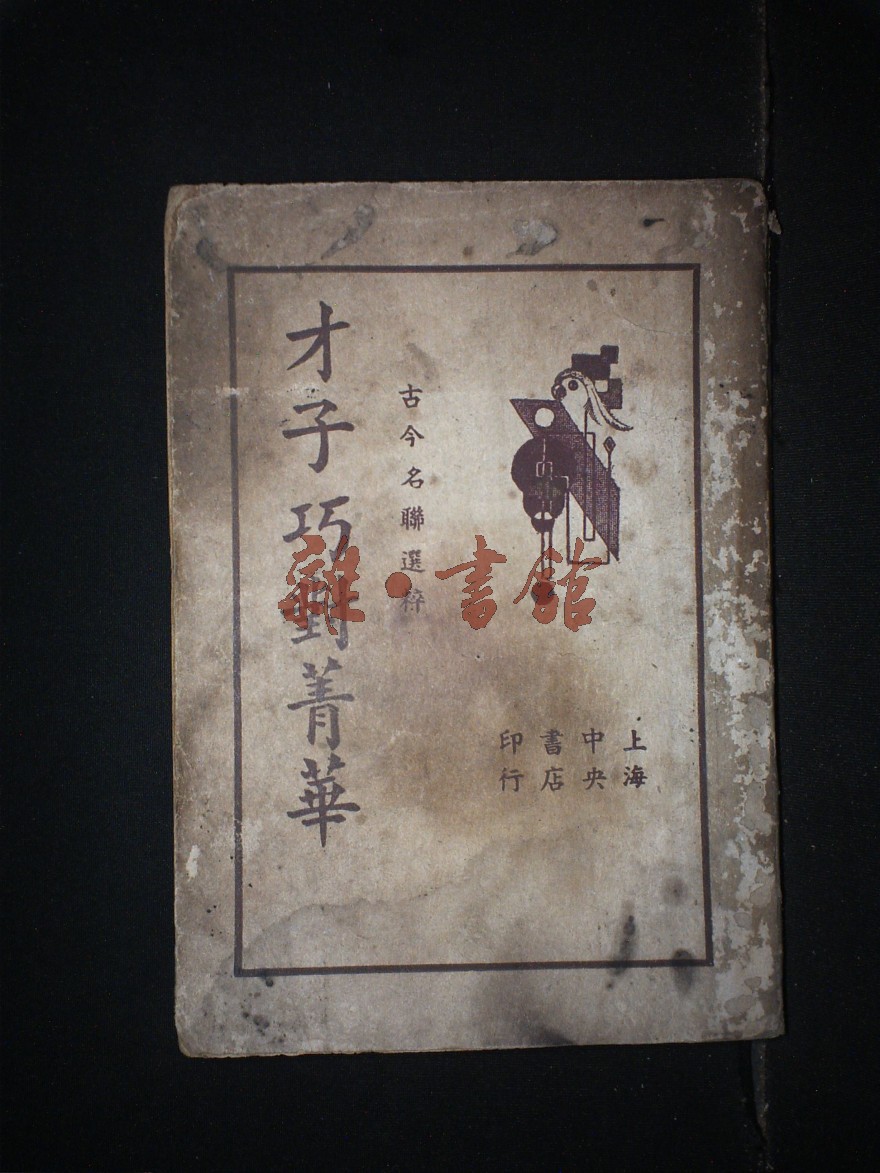 上海
中央
書店
印行
古今名聯選粹
才子巧對菁華
雜·書館